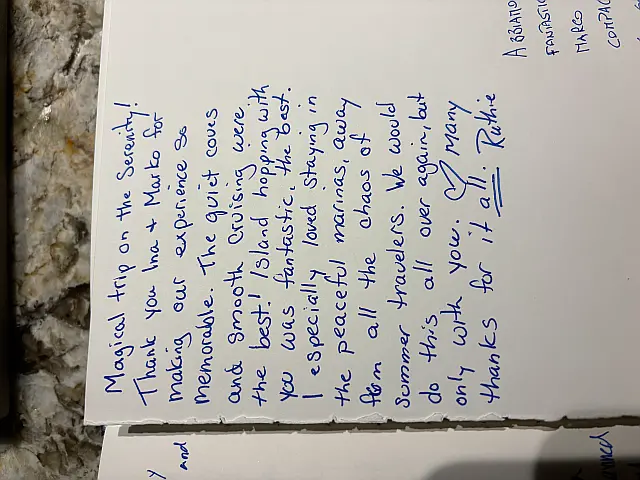 Magical trip on the Serenity!
Thank you Ina + Marko for
making our experience so
memorable. The quiet coves
and smooth cruising were
the best! Island hopping with
you was fantastic, the best.
I especially loved staying in
the peaceful marinas, away
from all the chaos of
summer travelers. We would
do this all over again, but
only with you. ♡ Many
thanks for it all. Ruthie
FANTASTIC
MARCO
y
and